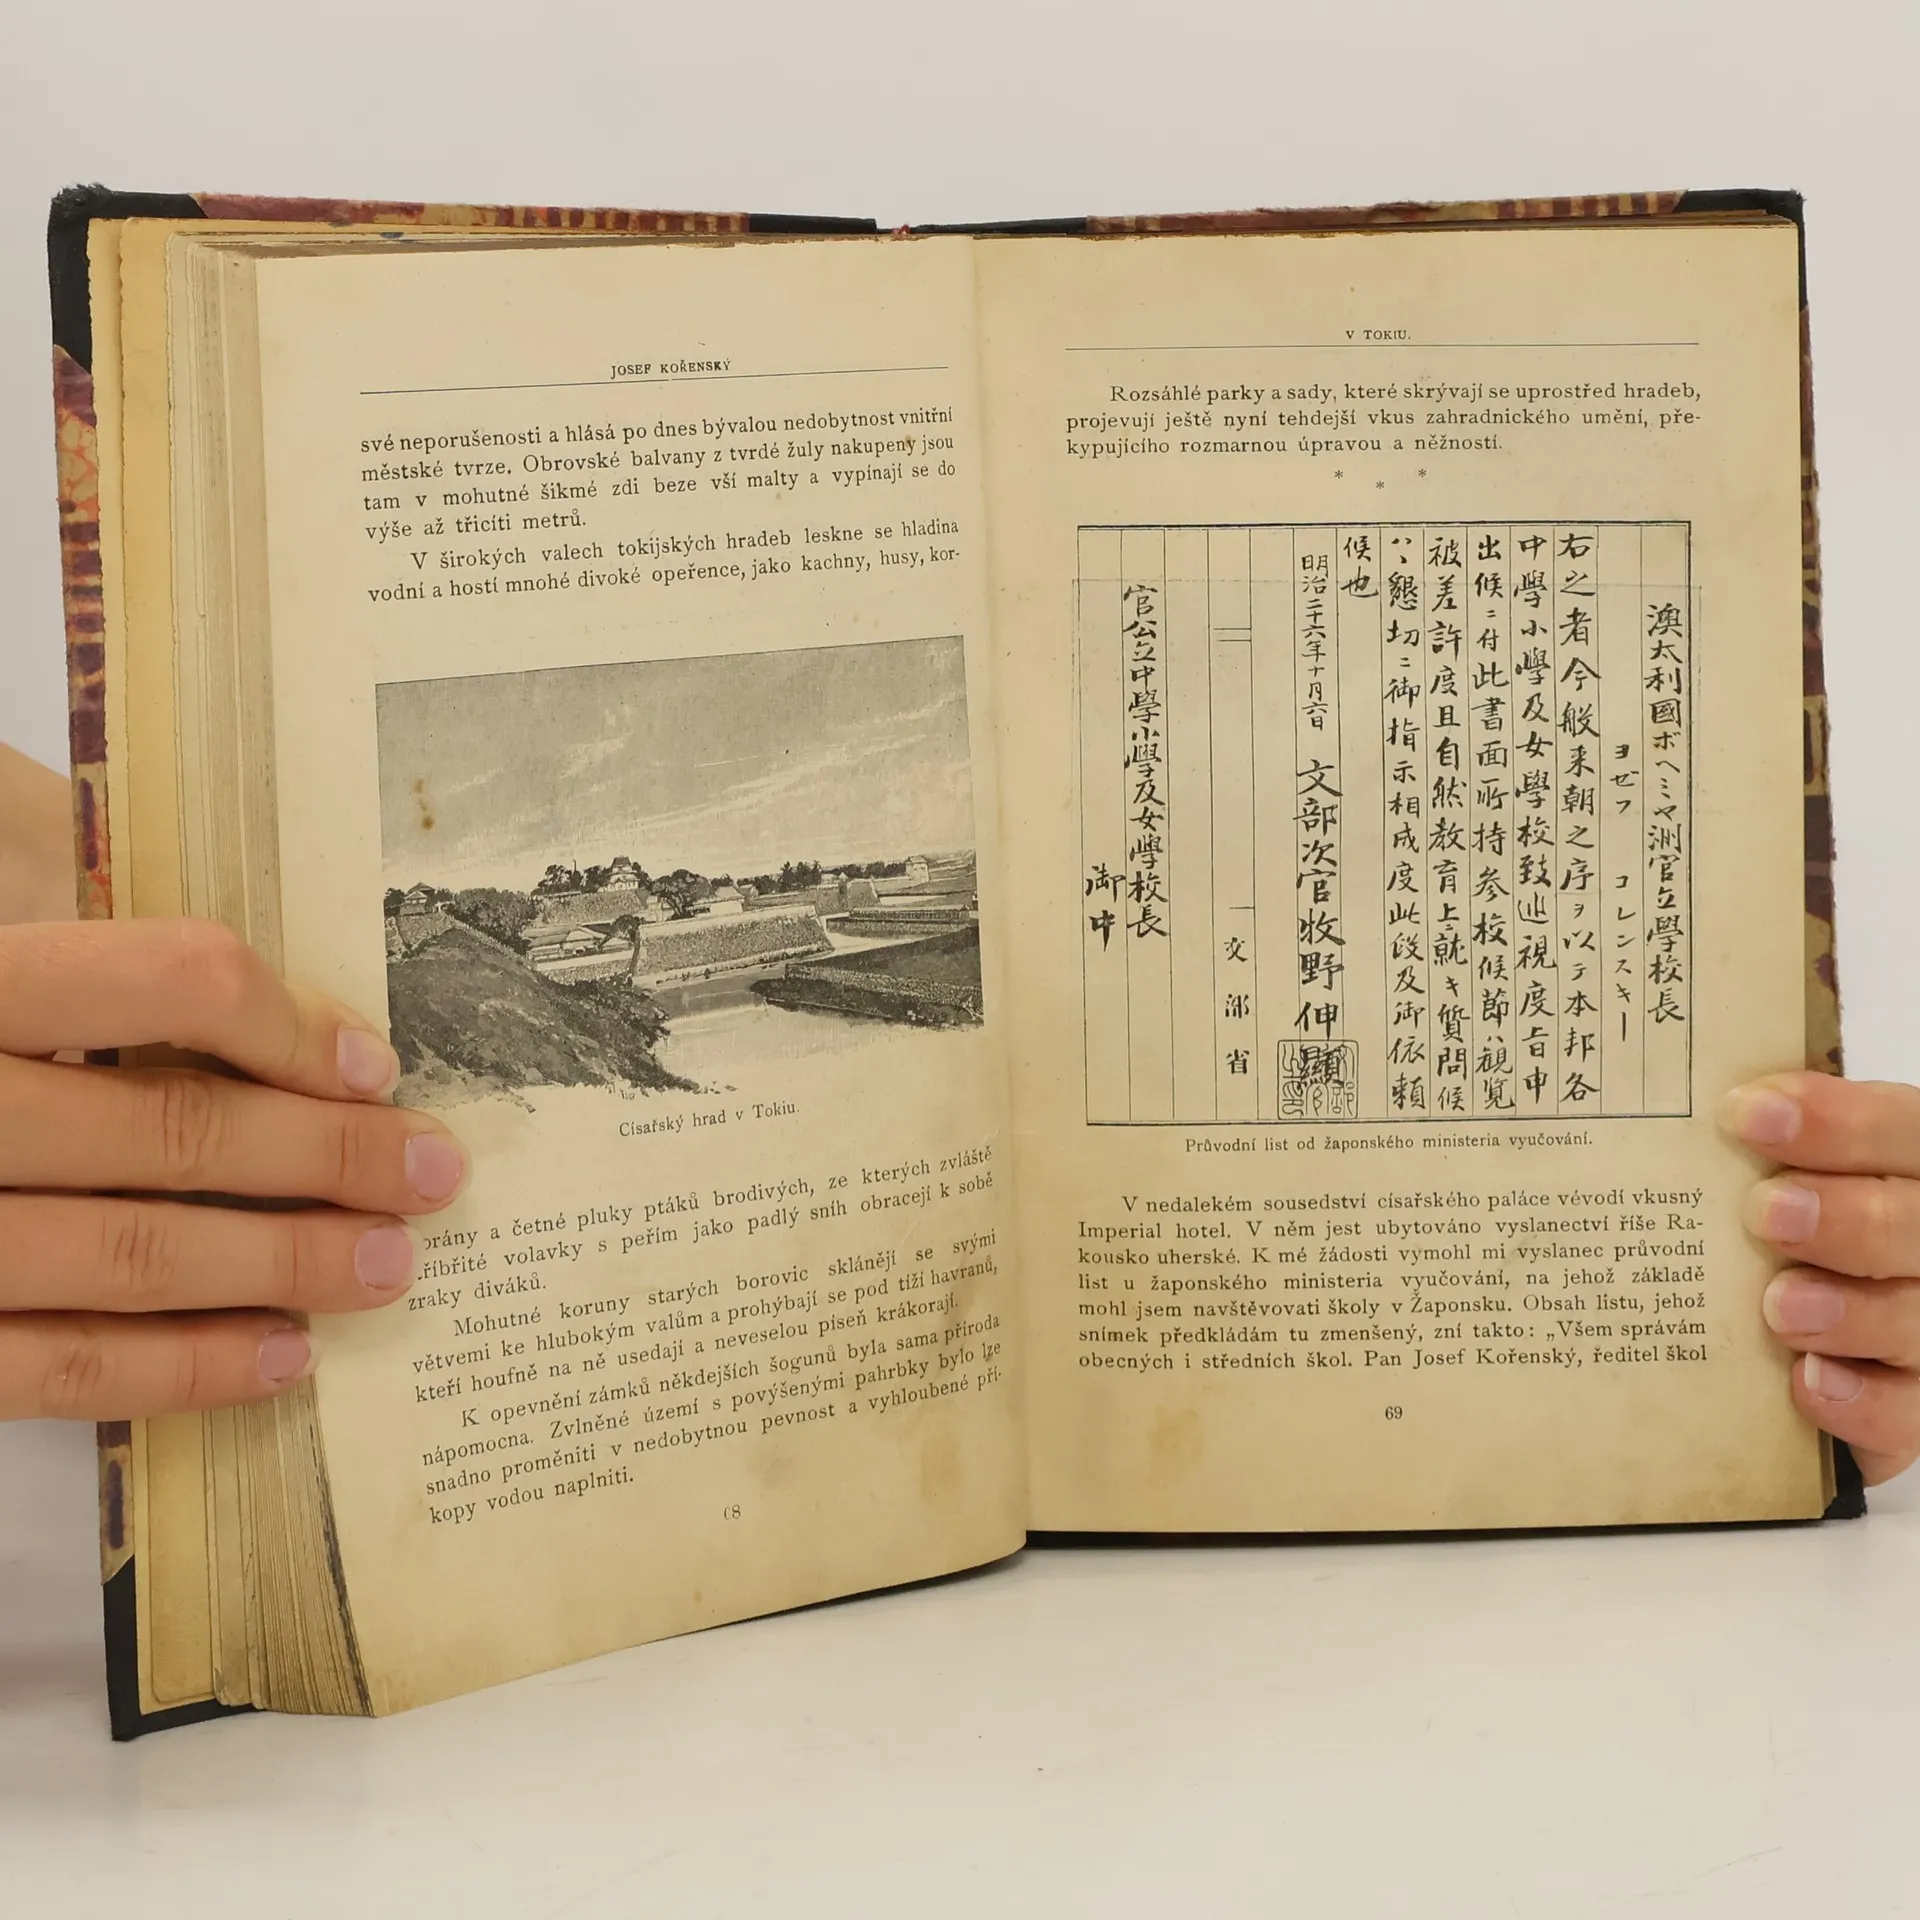 JOSEF KOŘENSKÝ
své neporušenosti a hlásá po dnes bývalou nedobytnost vnitřní
městské tvrze. Obrovské balvany z tvrdé žuly nakupeny jsou
tam v mohutné šikmé zdi beze vší malty a vypínají se do
výše až třicíti metrů.
V širokých valech tokijských hradeb leskne se hladina
vodní a hostí mnohé divoké opeřence, jako kachny, husy, kor-
Císařský hrad v Tokiu.
orány a četné pluky ptáků brodivých, ze kterých zvláště
tříbřité volavky s peřím jako padlý sníh obracejí k sobě
zraky diváků.
Mohutné koruny starých borovic sklánějí se svými
větvemi ke hlubokým valům a prohýbají se pod tíží havranů,
kteří houfně na ně usedají a neveselou píseň krákorají.
K opevnění zámků někdejších šogunů byla sama příroda
nápomocna. Zvlněné území s povýšenými pahrbky bylo lze
snadno proměniti v nedobytnou pevnost a vyhloubené pří-
kopy vodou naplniti.
68
V TOKIU.
Rozsáhlé parky a sady, které skrývají se uprostřed hradeb,
projevují ještě nyní tehdejší vkus zahradnického umění, pře-
kypujícího rozmarnou úpravou a něžností.
* * *
澳太利國ボヘミヤ洲官立學校長
ヨゼフ コレンスキー
右之者今般来朝之序ヲ以テ本邦各
中學小學及女學校致巡視度旨申
出候ニ付此書面所持参校候節ハ観覧
被差許度且自然教育上ニ就キ質問候
ハヽ懇切ニ御指示相成度此段及御依頼
候也
明治二十六年十月六日 文部次官牧野伸顯
文部省
官公立中學小學及女學校長
御中
Průvodní list od žaponského ministeria vyučování.
V nedalekém sousedství císařského paláce vévodí vkusný
Imperial hotel. V něm jest ubytováno vyslanectví říše Ra-
kousko uherské. K mé žádosti vymohl mi vyslanec průvodní
list u žaponského ministeria vyučování, na jehož základě
mohl jsem navštěvovati školy v Žaponsku. Obsah listu, jehož
snímek předkládám tu zmenšený, zní takto: „Všem správám
obecných i středních škol. Pan Josef Kořenský, ředitel škol
69